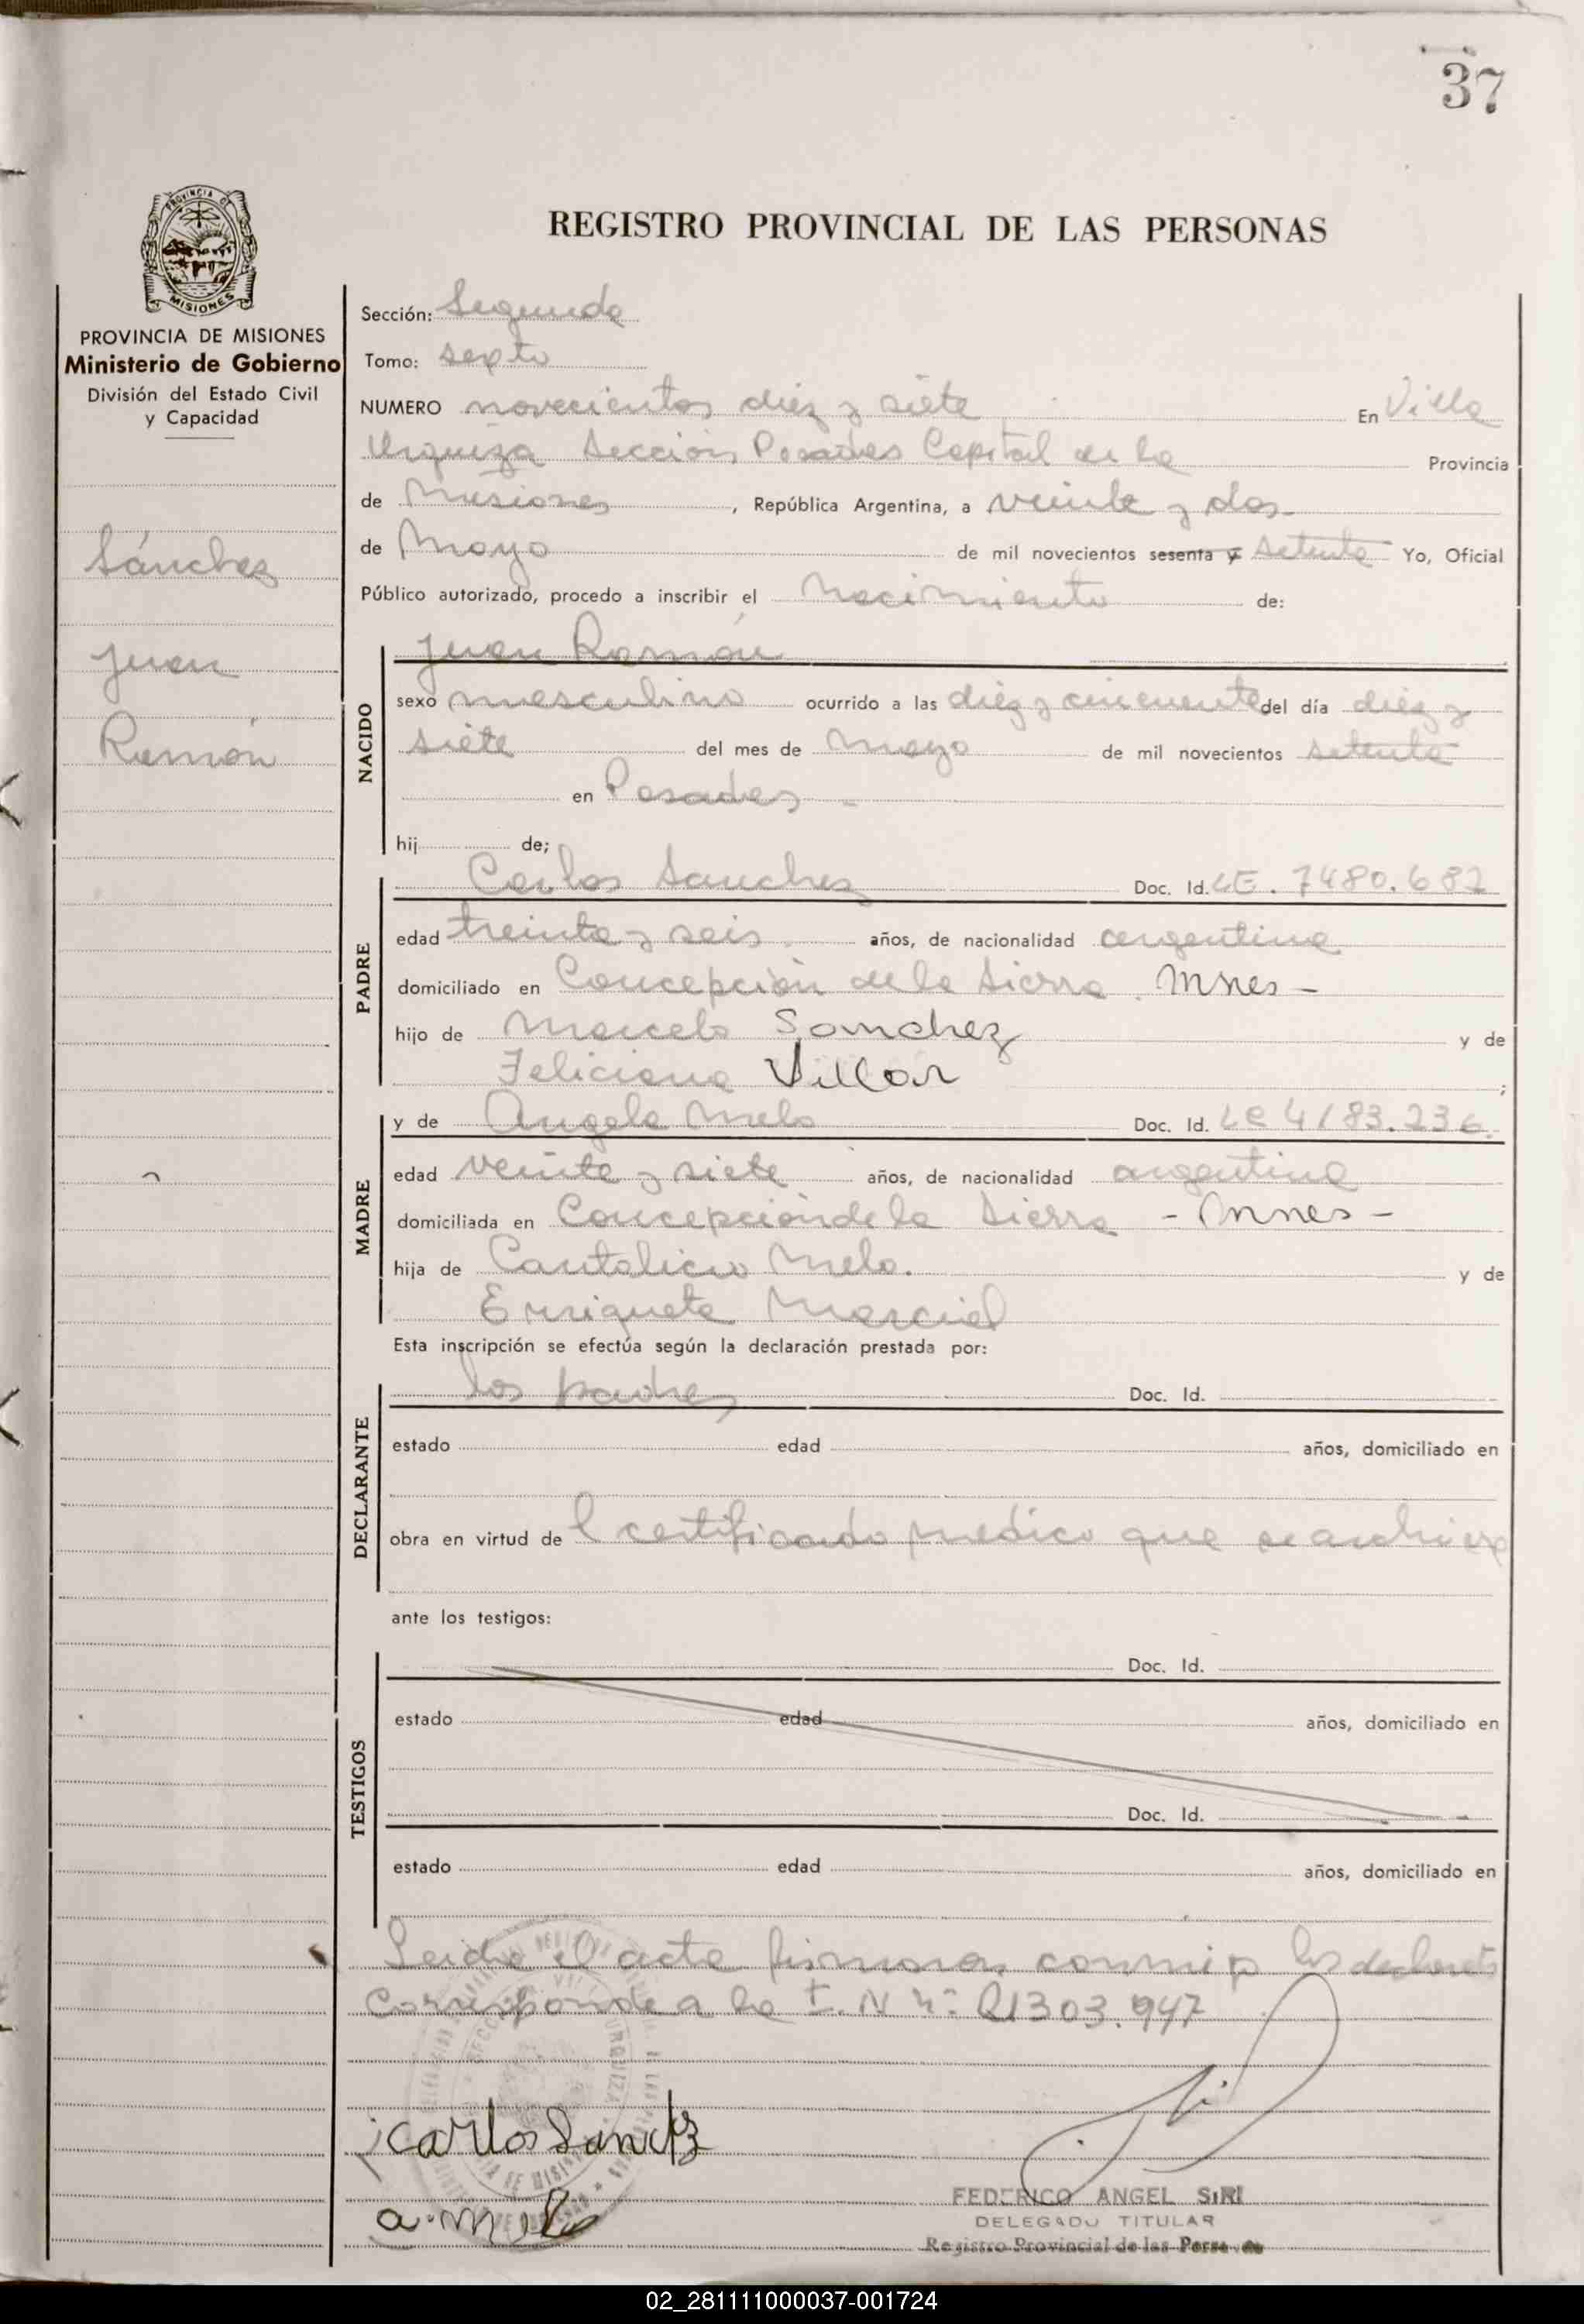 37
PROVINCIA DE
MISIONES
PROVINCIA DE MISIONES
Ministerio de Gobierno
División del Estado Civil
y Capacidad
Sánchez
Juan
Ramón
REGISTRO PROVINCIAL DE LAS PERSONAS
Sección: Segunda
Tomo: sexto
NUMERO novecientos diez y siete En Villa
Urquiza Sección Posadas Capital de la Provincia
de Misiones, República Argentina, a veinte y dos
de Mayo de mil novecientos sesenta y setenta Yo, Oficial
Público autorizado, procedo a inscribir el Nacimiento de:
NACIDO
Juan Ramón
sexo masculino ocurrido a las diez y cincuenta del día diez y
siete del mes de Mayo de mil novecientos setenta
en Posadas -
hij de;
PADRE
Carlos Sanchez Doc. Id. LE. 7480.682
edad treinta y seis años, de nacionalidad argentina
domiciliado en Concepción de la Sierra Mnes -
hijo de Marcelo Sanchez y de
Feliciana Villar ;
MADRE
y de Angela Melo Doc. Id. LC 4183.236.
edad veinte y siete años, de nacionalidad argentina
domiciliada en Concepción de la Sierra - Mnes -
hija de Cantalicio Melo. y de
Enriqueta Marcial
Esta inscripción se efectúa según la declaración prestada por:
DECLARANTE
los padres Doc. Id.
estado edad años, domiciliado en
obra en virtud de l certificado medico que se archiva
ante los testigos:
TESTIGOS
Doc. Id.
estado edad años, domiciliado en
Doc. Id.
estado edad años, domiciliado en
Leida el acta firman conmigo los
Corresponde a la I. N nº 21303.947
Carlos Sanchez
a. melo
FEDERICO ANGEL SIRI
DELEGADO TITULAR
Registro Provincial de las Personas
02_281111000037-001724